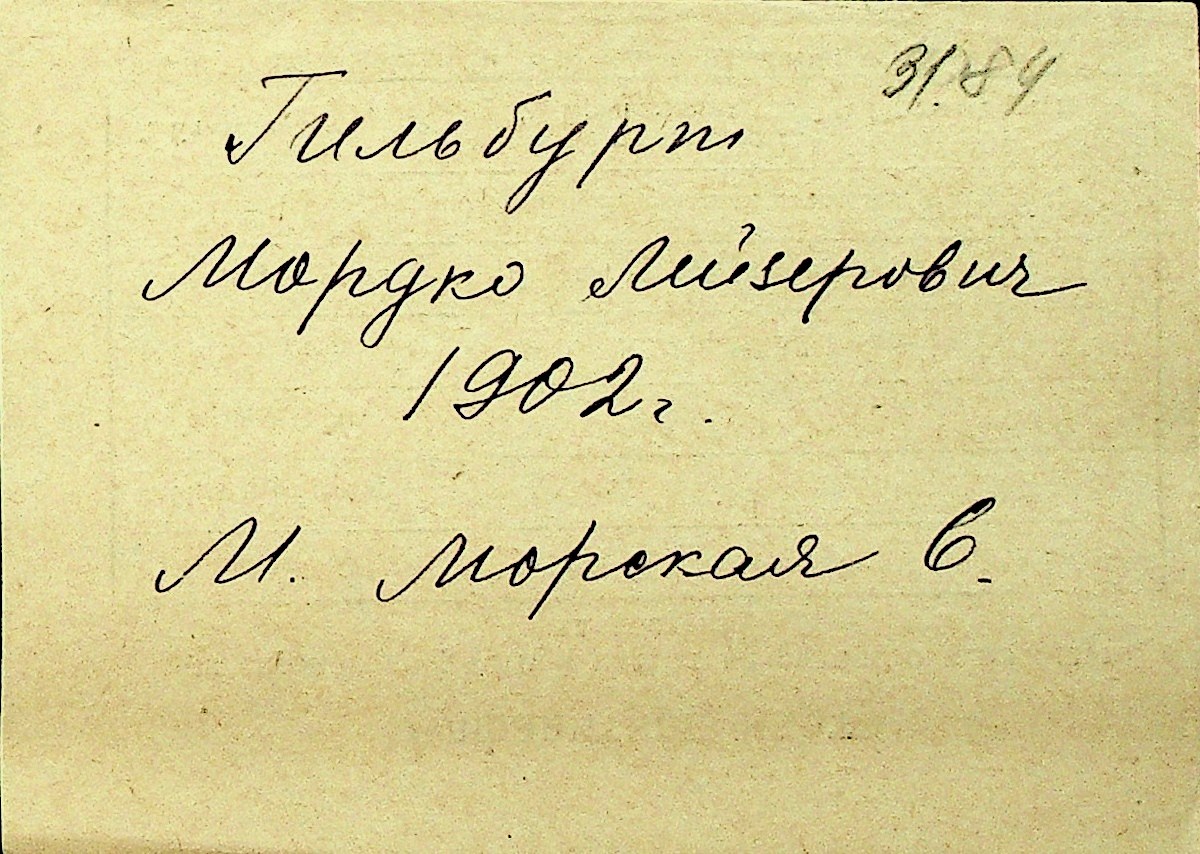 31.84
Гильбурт
Мордко Лейзерович
1902 г.
М. Морская 6.